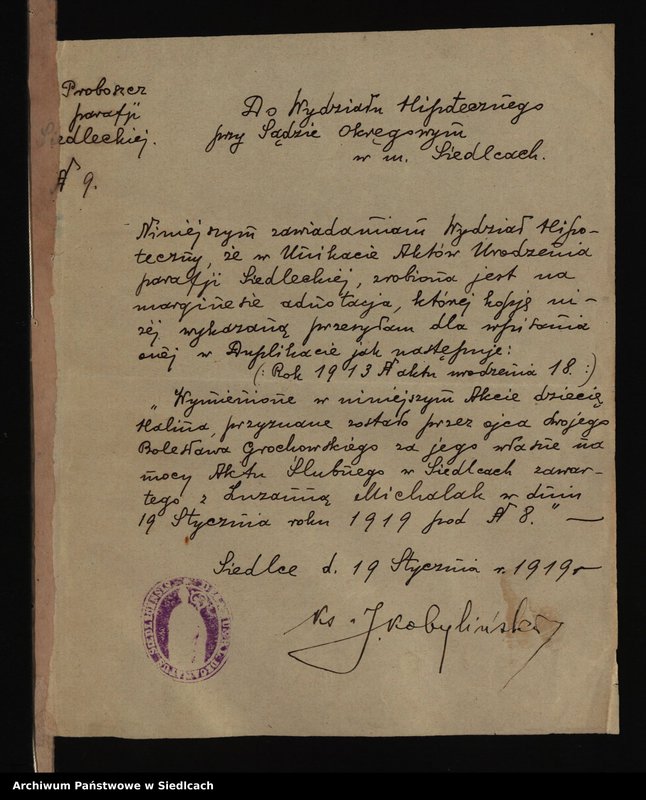 Proboszcz
parafji
Siedleckiej.
№ 9.
Do Wydziału Hipotecznego
przy Sądzie Okręgowym
w m. Siedlcach.
Niniejszym zawiadamiam Wydział Hipo-
teczny, że w Unikacie Aktów Urodzenia
parafji Siedleckiej, zrobiona jest na
marginesie adnotacja, której kopję ni-
żej wykazaną przesyłam dla wpisania
onej w Duplikacie jak następuje:
(: Rok 1913 № aktu urodzenia 18. :)
„Wymienione w niniejszym Akcie dziecię
Halina, przyznane zostało przez ojca swojego
Bolesława Grochowskiego za jego własne na
mocy Aktu Ślubnego w Siedlcach zawar-
tego z Zuzanną Michalak w dniu
19 Stycznia roku 1919 pod № 8." —
Siedlce d. 19 Stycznia r. 1919 r
Ks. J. Kobyliński
Archiwum Państwowe w Siedlcach